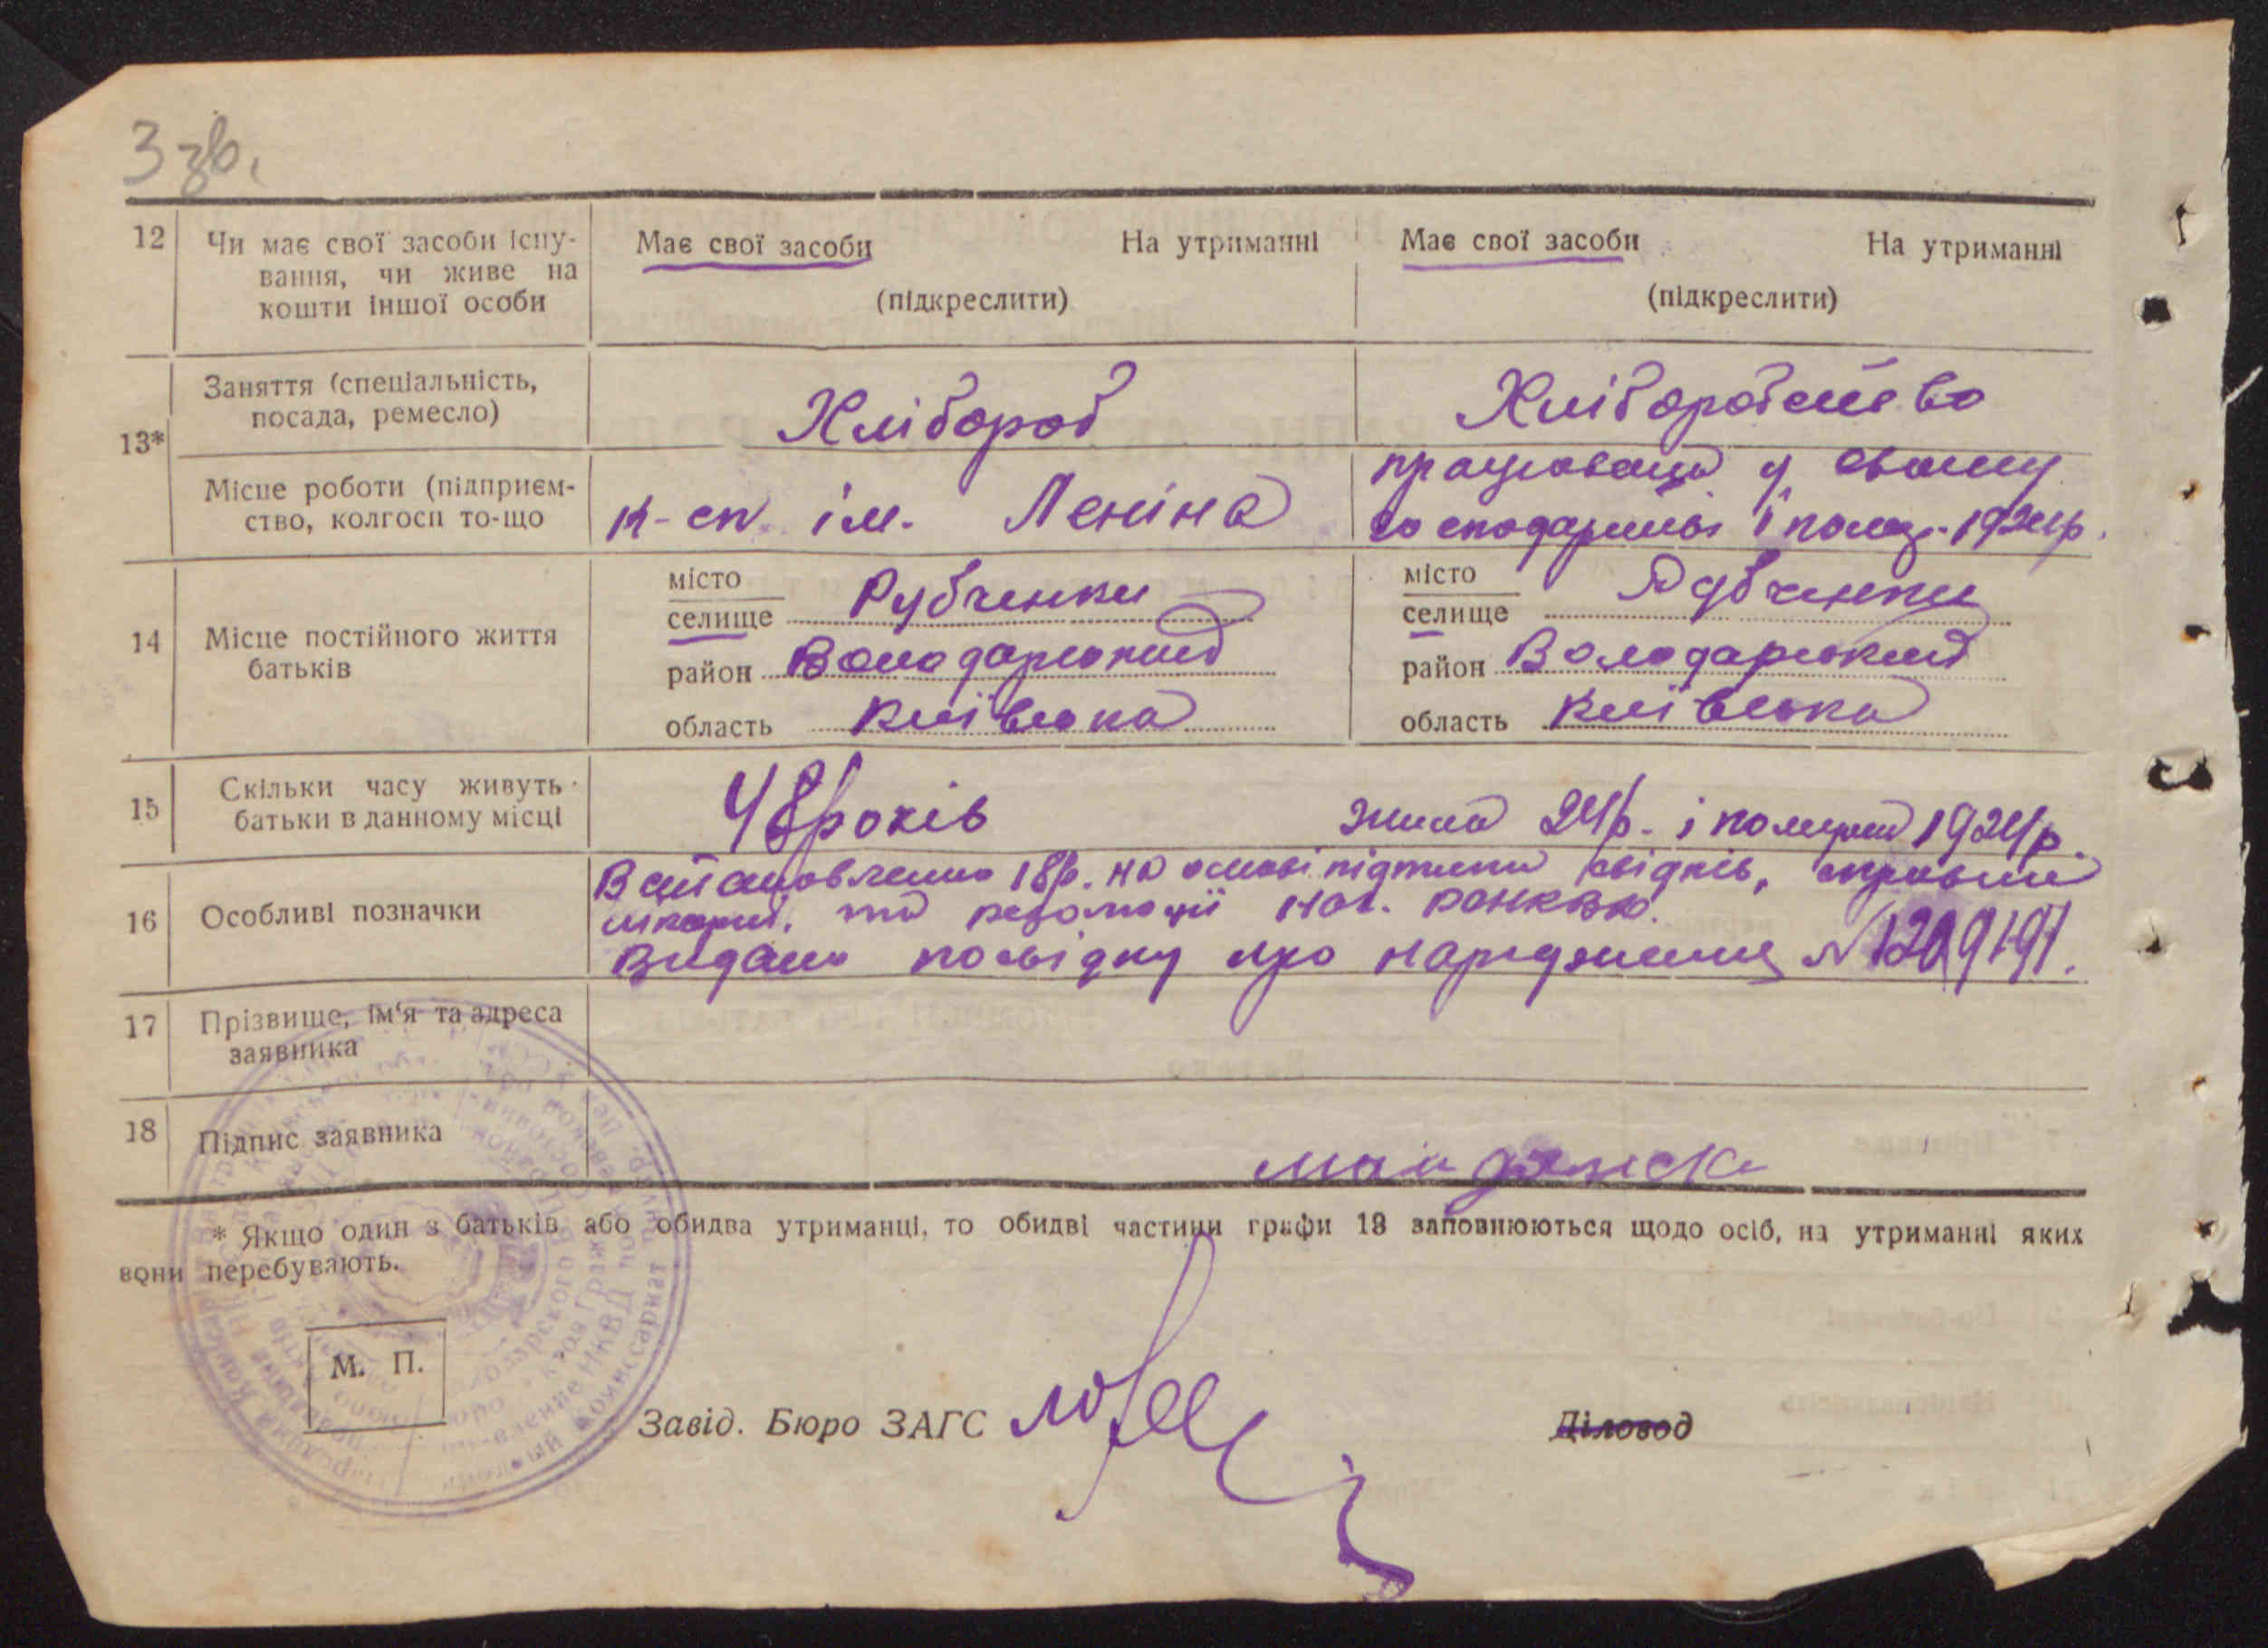 3 зв.
12 Чи має свої засоби існу-
вання, чи живе на
кошти іншої особи
Має свої засоби На утриманні
(підкреслити)
Має свої засоби На утриманні
(підкреслити)
13*
Заняття (спеціальність,
посада, ремесло)
Хлібороб
Хліборобство
Місце роботи (підприєм-
ство, колгосп то-що
к-сп. ім. Леніна
працювала у своему
господарстві і 1924р.
14 Місце постійного життя
батьків
місто
селище Рубченки
район Володарський
область Київська
місто
селище Рубченки
район Володарський
область Київська
15 Скільки часу живуть
батьки в данному місці
48 років
жила 24р. і померла 1924р.
16 Особливі позначки
Встановлено 18р. на основі свідків, справки
та резолюції нач. РОНКВД.
Видано посвідку про народження №
17 Прізвище, ім'я та адреса
заявника
18 Підпис заявника
* Якщо один з батьків або обидва утриманці, то обидві частини графи 13 заповнюються щодо осіб, на утриманні яких
вони перебувають.
М. П.
Завід. Бюро ЗАГС
Діловод